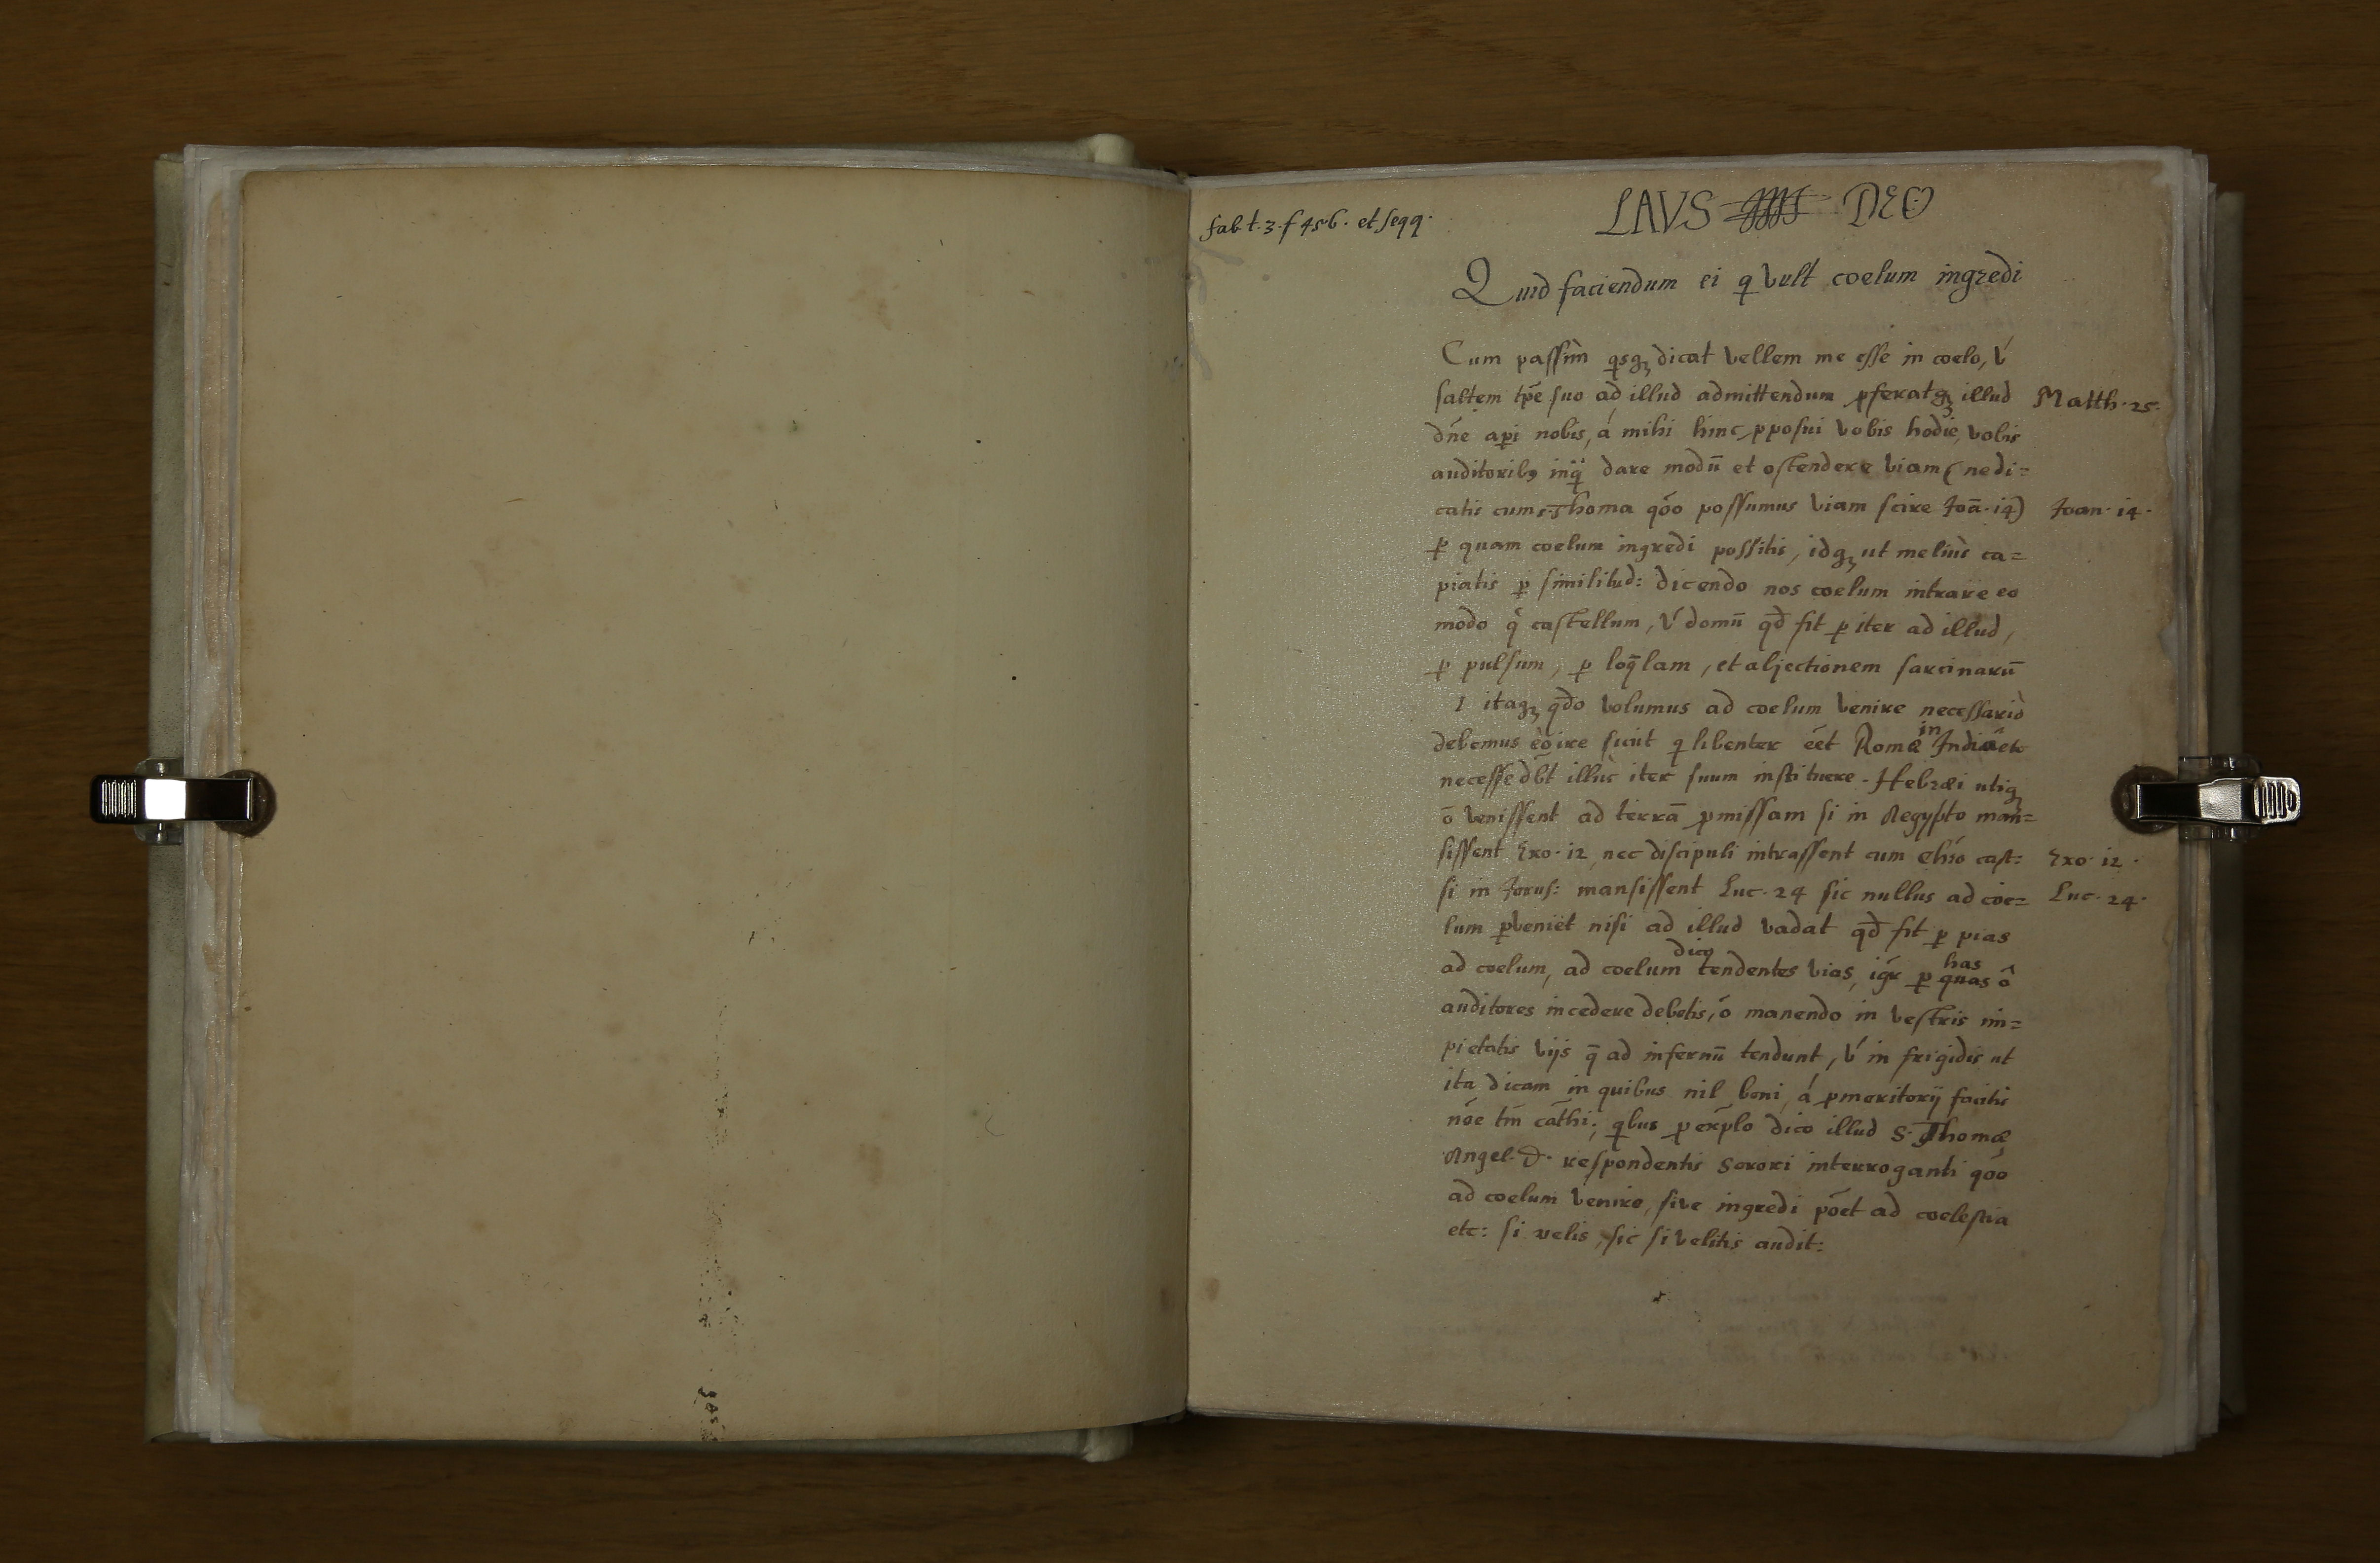 fab t. 3. f 45 b. et seqq.
LAVS DEO
Quid faciendum ei q vult coelum ingredi
Cum passim qsqꝫ dicat vellem me esse in coelo, v́
saltem tp̄e suo ad illud admittendum ꝓferatqꝫ illud
Matth. 25.
dn̄e aꝑi nobis, á mihi hinc ꝓposui vobis hodie, vobis
auditoribꝰ inq̄ dare modū et ostendere viam (ne di=
catis cum s. Thoma qōo possumus viam scire Joā. 14)
Joan. 14.
ꝑ quam coelum ingredi possitis, idqꝫ ut meliùs ca=
piatis ꝑ similitud: dicendo nos coelum intrare eo
modo q̀ castellum, v́ domū qd̄ fit ꝑ iter ad illud,
ꝑ pulsum, ꝑ loq̄lam, et abjectionem sarcinarū
1 itaqꝫ qd̄o volumus ad coelum venire necessariò
debemus eò ire sicut q libenter eēt Romæ in Indiâ etc
necesse dbt̄ illùc iter suum instituere. Hebræi utiqꝫ
ō venissent ad terrā ꝓmissam si in Aegypto man=
sissent Exo. 12 nec discipuli intrassent cum Chr̄o cast:
Exo. 12.
si in Jerus: mansissent Luc. 24 sic nullus ad coe=
Luc. 24.
lum ꝑveniet nisi ad illud vadat qd̄ fit ꝑ pias
ad coelum, ad coelum dico tendentes vias, igr̄ ꝑ has quas ô
auditores incedere debetis, ō manendo in vestris im=
pietatis vijs q̄ ad infernū tendunt, v́ in frigidis ut
ita dicam in quibus nil boni, á ꝓmeritorij facitis
nōe tm̄ cāthi; qbus ꝓ exp̄lo dico illud S. Thomæ
Angel. D. respondentis sorori interroganti qōo
ad coelum venire, sive ingredi pōet ad coelestia
etc: si velis, sic si velitis audit: